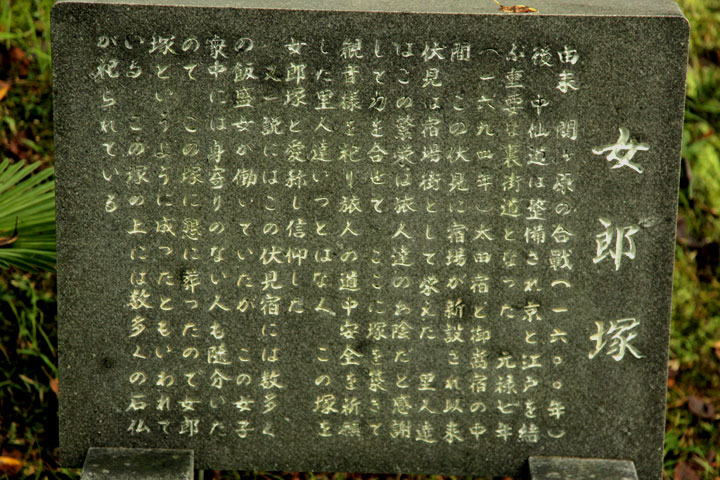 女郎塚
由来 関ヶ原の合戦(一六〇〇年)
後 中仙道は整備され京と江戸を結
ぶ重要は裏街道となった 元禄七年
(一六九四年)太田宿と御嵩宿の中
間 この伏見に宿場が新設され以来
伏見は宿場街として栄えた 里人達
はこの繁栄は旅人達のお陰だと感謝
して力を合せて ここに塚を築きて
観音様を祀り旅人の道中安全を祈願
した里人達いつとはなく この塚を
女郎塚と愛称し信仰した
又一説にはこの伏見宿には数多く
の飯盛女が働いていたが この女子
衆中には身寄りのない人も随分いた
ので この塚に懇に葬ったので女郎
塚というように成ったともいわれて
いる この塚の上には数多くの石仏
が祀られている